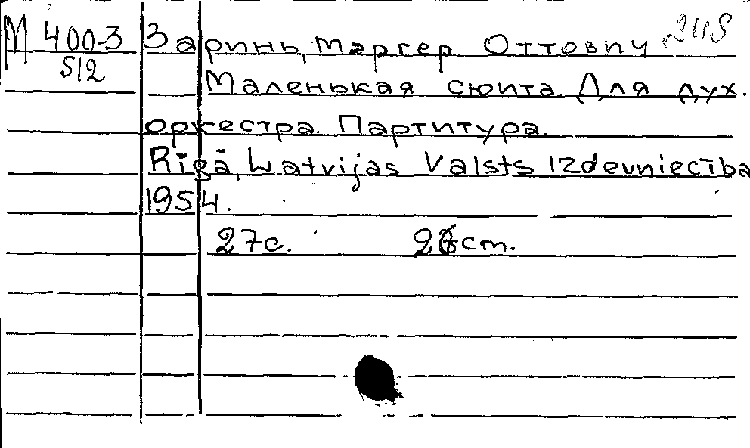 М 400-3 Заринь, Маргер Оттович 245
512 Маленькая сюита Для дух.
оркестра. Партитура.
Rīgā, Latvijas Valsts Izdevniecība
1954.
27с. 28cm.